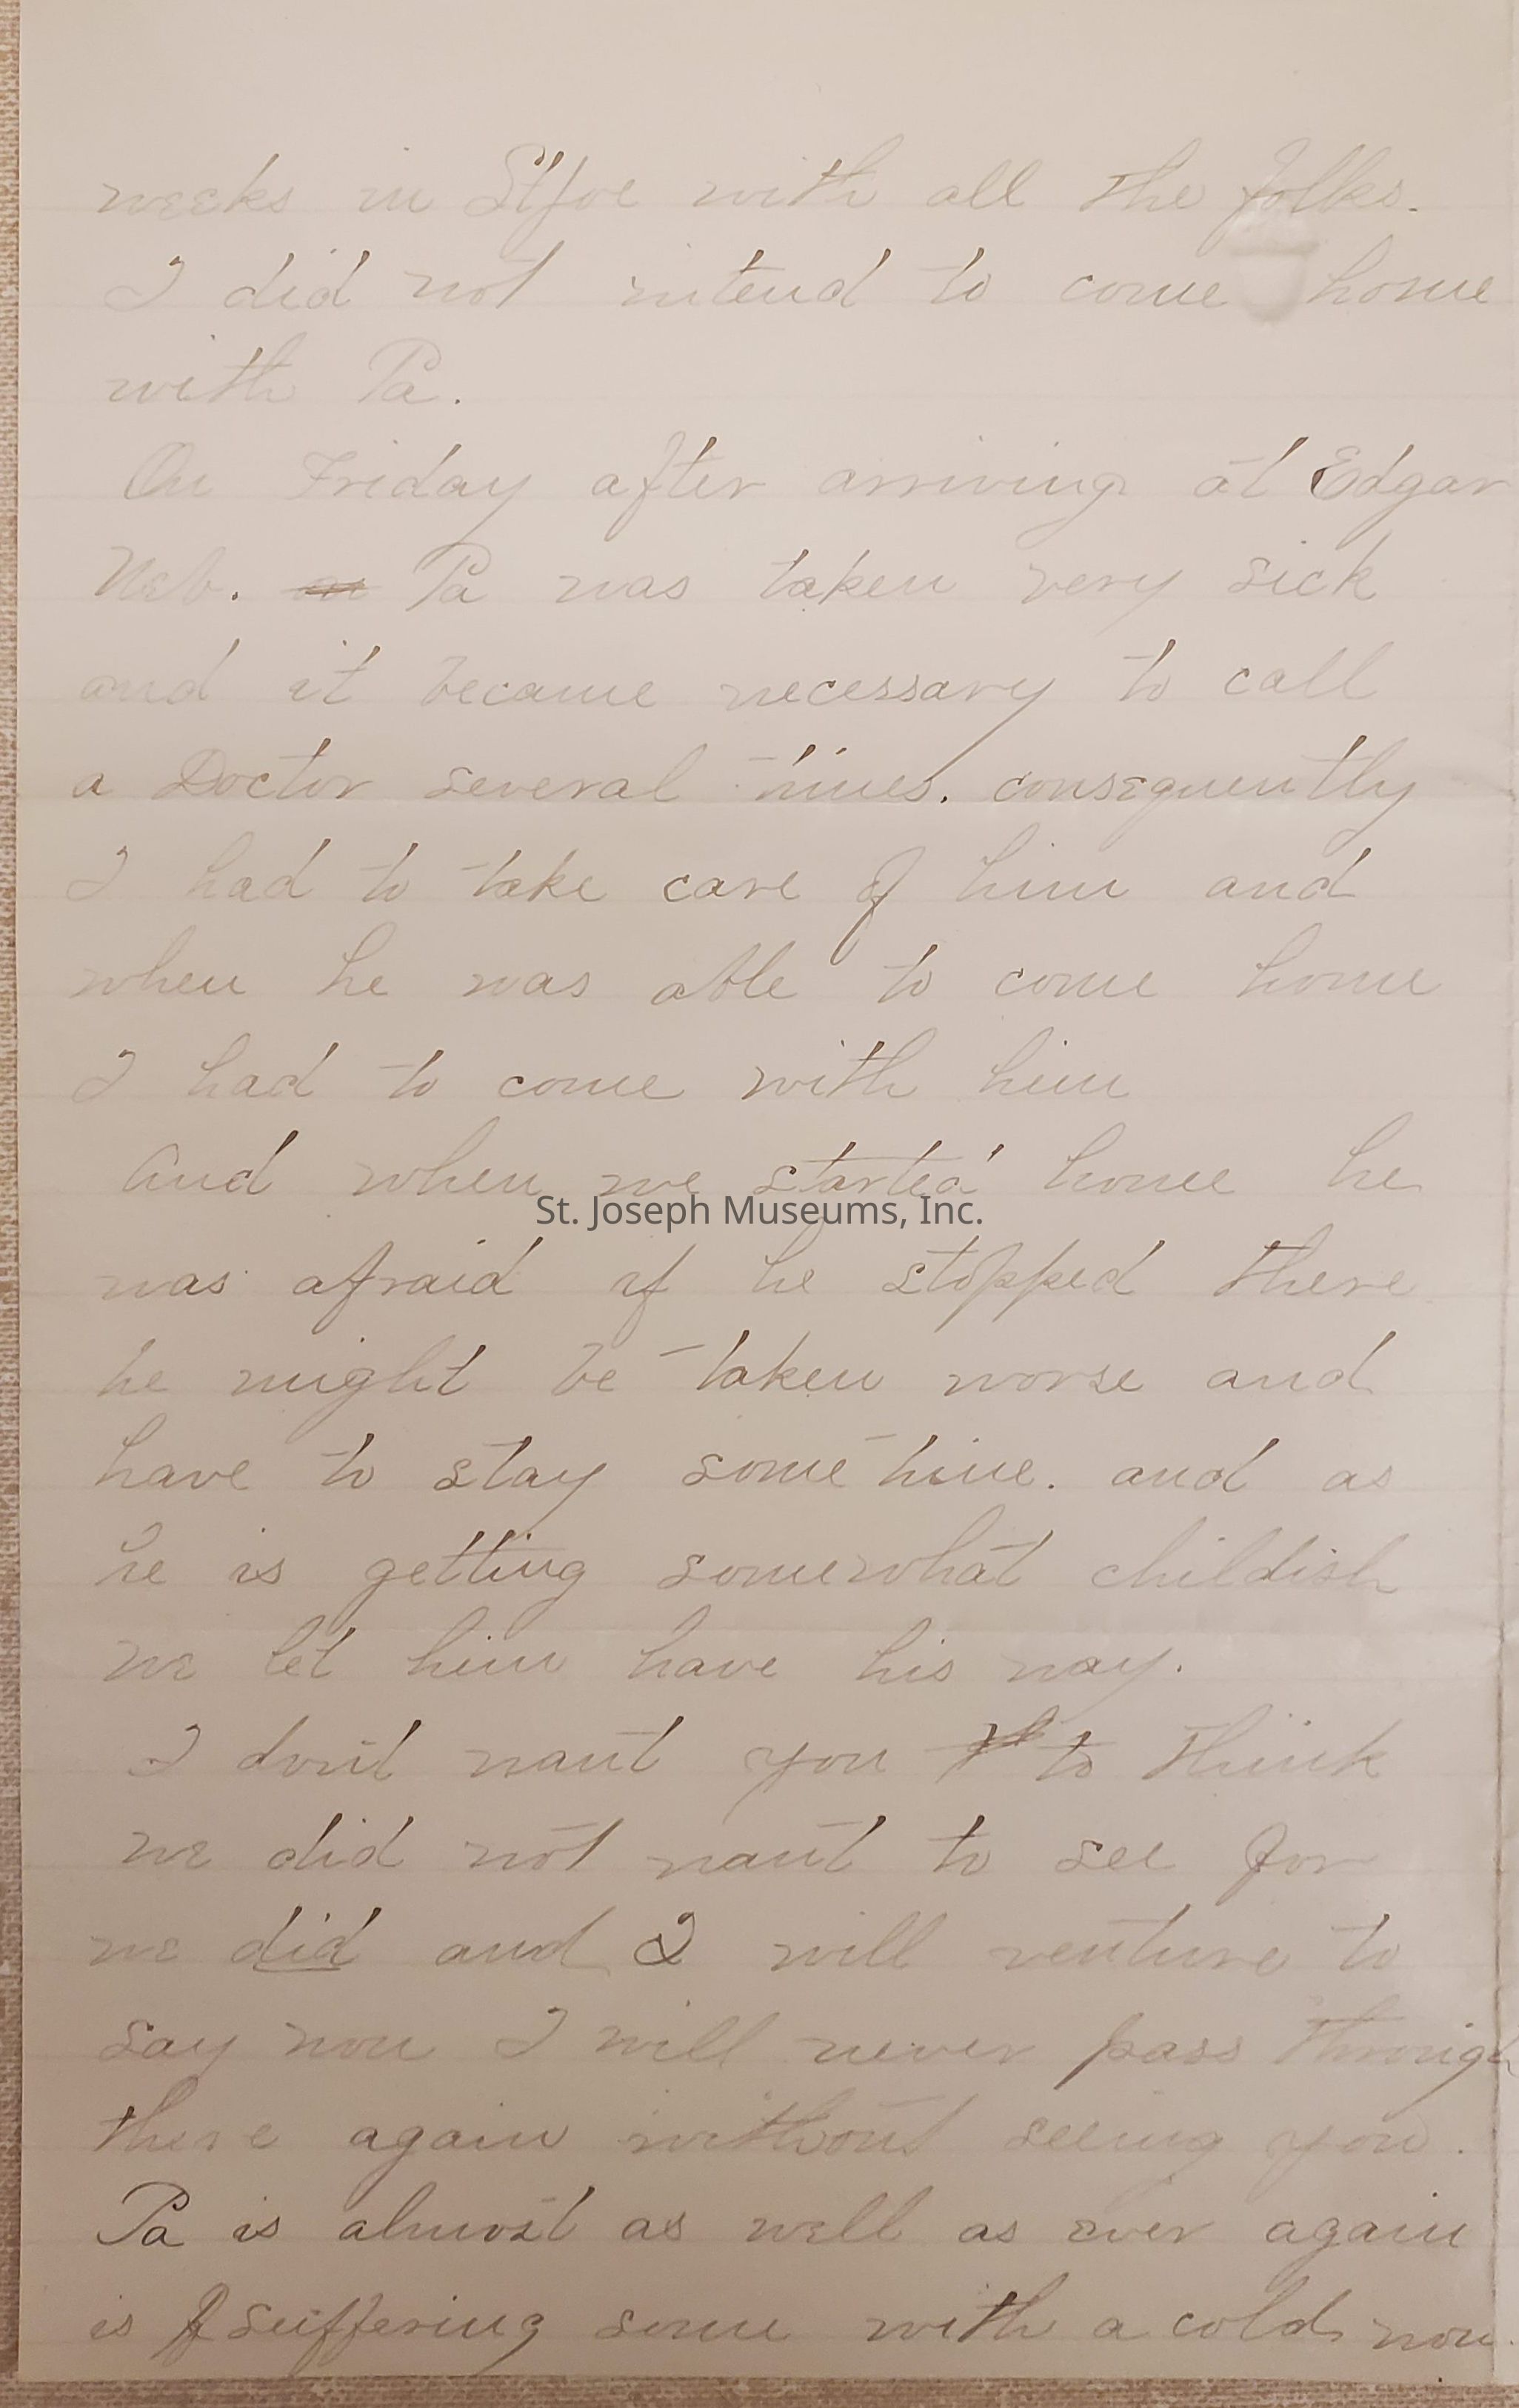 weeks in St Joe with all the folks.
I did not intend to come home
with Pa.
On Friday after arriving at Edgar
Neb. Pa was taken very sick
and it became necessary to call
a Doctor several times. consequently
I had to take care of him and
when he was able to come home
I had to come with him
And when we started home he
St. Joseph Museums, Inc.
was afraid if he stopped there
he might be taken worse and
have to stay some time. and as
he is getting somewhat childish
we let him have his way.
I don't want you to think
we did not want to see for
we did and I will venture to
say now I will never pass through
there again without seeing you.
Pa is almost as well as ever again
is suffering some with a cold now.